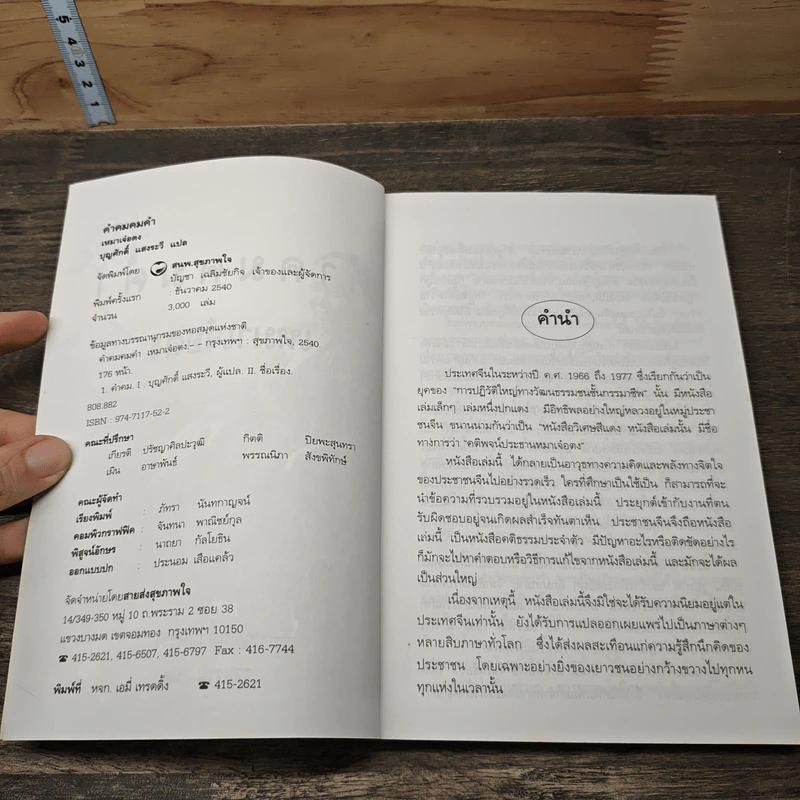 5 4 3 2 1
คำคมคมคำ
เหมาเจ๋อตง
บุญศักดิ์ แสงระวี แปล
จัดพิมพ์โดย สนพ.สุขภาพใจ
บัญชา เฉลิมชัยกิจ เจ้าของและผู้จัดการ
พิมพ์ครั้งแรก : ธันวาคม 2540
จำนวน 3,000 เล่ม
ข้อมูลทางบรรณานุกรมของหอสมุดแห่งชาติ
คำคมคมคำ เหมาเจ๋อตง.-- กรุงเทพฯ : สุขภาพใจ, 2540
176 หน้า.
1. คำคม. I . บุญศักดิ์ แสงระวี, ผู้แปล. II. ชื่อเรื่อง.
808.882
ISBN : 974-7117-52-2
คณะที่ปรึกษา
เกียรติ ปรัชญาศิลปะวุฒิ กิตติ ปิยะพสุนทรา
เมิน อาษาพันธ์ พรรณนิภา สังขพิทักษ์
คณะผู้จัดทำ
เรียงพิมพ์ : ภัทรา นันทกาญจน์
คอมพิวกราฟฟิค : จันทนา พาณิชย์กุล
พิสูจน์อักษร : นาถยา กัลโยธิน
ออกแบบปก : ประนอม เสือแคล้ว
จัดจำหน่ายโดยสายส่งสุขภาพใจ
14/349-350 หมู่ 10 ถ.พระราม 2 ซอย 38
แขวงบางมด เขตจอมทอง กรุงเทพฯ 10150
☎ 415-2621, 415-6507, 415-6797 Fax : 416-7744
พิมพ์ที่ หจก. เอมี่ เทรดดิ้ง ☎ 415-2621
คำนำ
ประเทศจีนในระหว่างปี ค.ศ. 1966 ถึง 1977 ซึ่งเรียกกันว่าเป็น
ยุคของ "การปฏิวัติใหญ่ทางวัฒนธรรมชนชั้นกรรมาชีพ" นั้น มีหนังสือ
เล่มเล็กๆ เล่มหนึ่งปกแดง มีอิทธิพลอย่างใหญ่หลวงอยู่ในหมู่ประชา
ชนจีน ขนานนามกันว่าเป็น "หนังสือวิเศษสีแดง หนังสือเล่มนั้น มีชื่อ
ทางการว่า "คติพจน์ประธานเหมาเจ๋อตง"
หนังสือเล่มนี้ ได้กลายเป็นอาวุธทางความคิดและพลังทางจิตใจ
ของประชาชนจีนไปอย่างรวดเร็ว ใครที่ศึกษาเป็นใช้เป็น ก็สามารถที่จะ
นำข้อความที่รวบรวมอยู่ในหนังสือเล่มนี้ ประยุกต์เข้ากับงานที่ตน
รับผิดชอบอยู่จนเกิดผลสำเร็จทันตาเห็น ประชาชนจีนจึงถือหนังสือ
เล่มนี้ เป็นหนังสือคติธรรมประจำตัว มีปัญหาอะไรหรือติดขัดอย่างไร
ก็มักจะไปหาคำตอบหรือวิธีการแก้ไขจากหนังสือเล่มนี้ และมักจะได้ผล
เป็นส่วนใหญ่
เนื่องจากเหตุนี้ หนังสือเล่มนี้จึงมิใช่จะได้รับความนิยมอยู่แต่ใน
ประเทศจีนเท่านั้น ยังได้รับการแปลออกเผยแพร่ไปเป็นภาษาต่างๆ
หลายสิบภาษาทั่วโลก ซึ่งได้ส่งผลสะเทือนแก่ความรู้สึกนึกคิดของ
ประชาชน โดยเฉพาะอย่างยิ่งของเยาวชนอย่างกว้างขวางไปทุกหน
ทุกแห่งในเวลานั้น